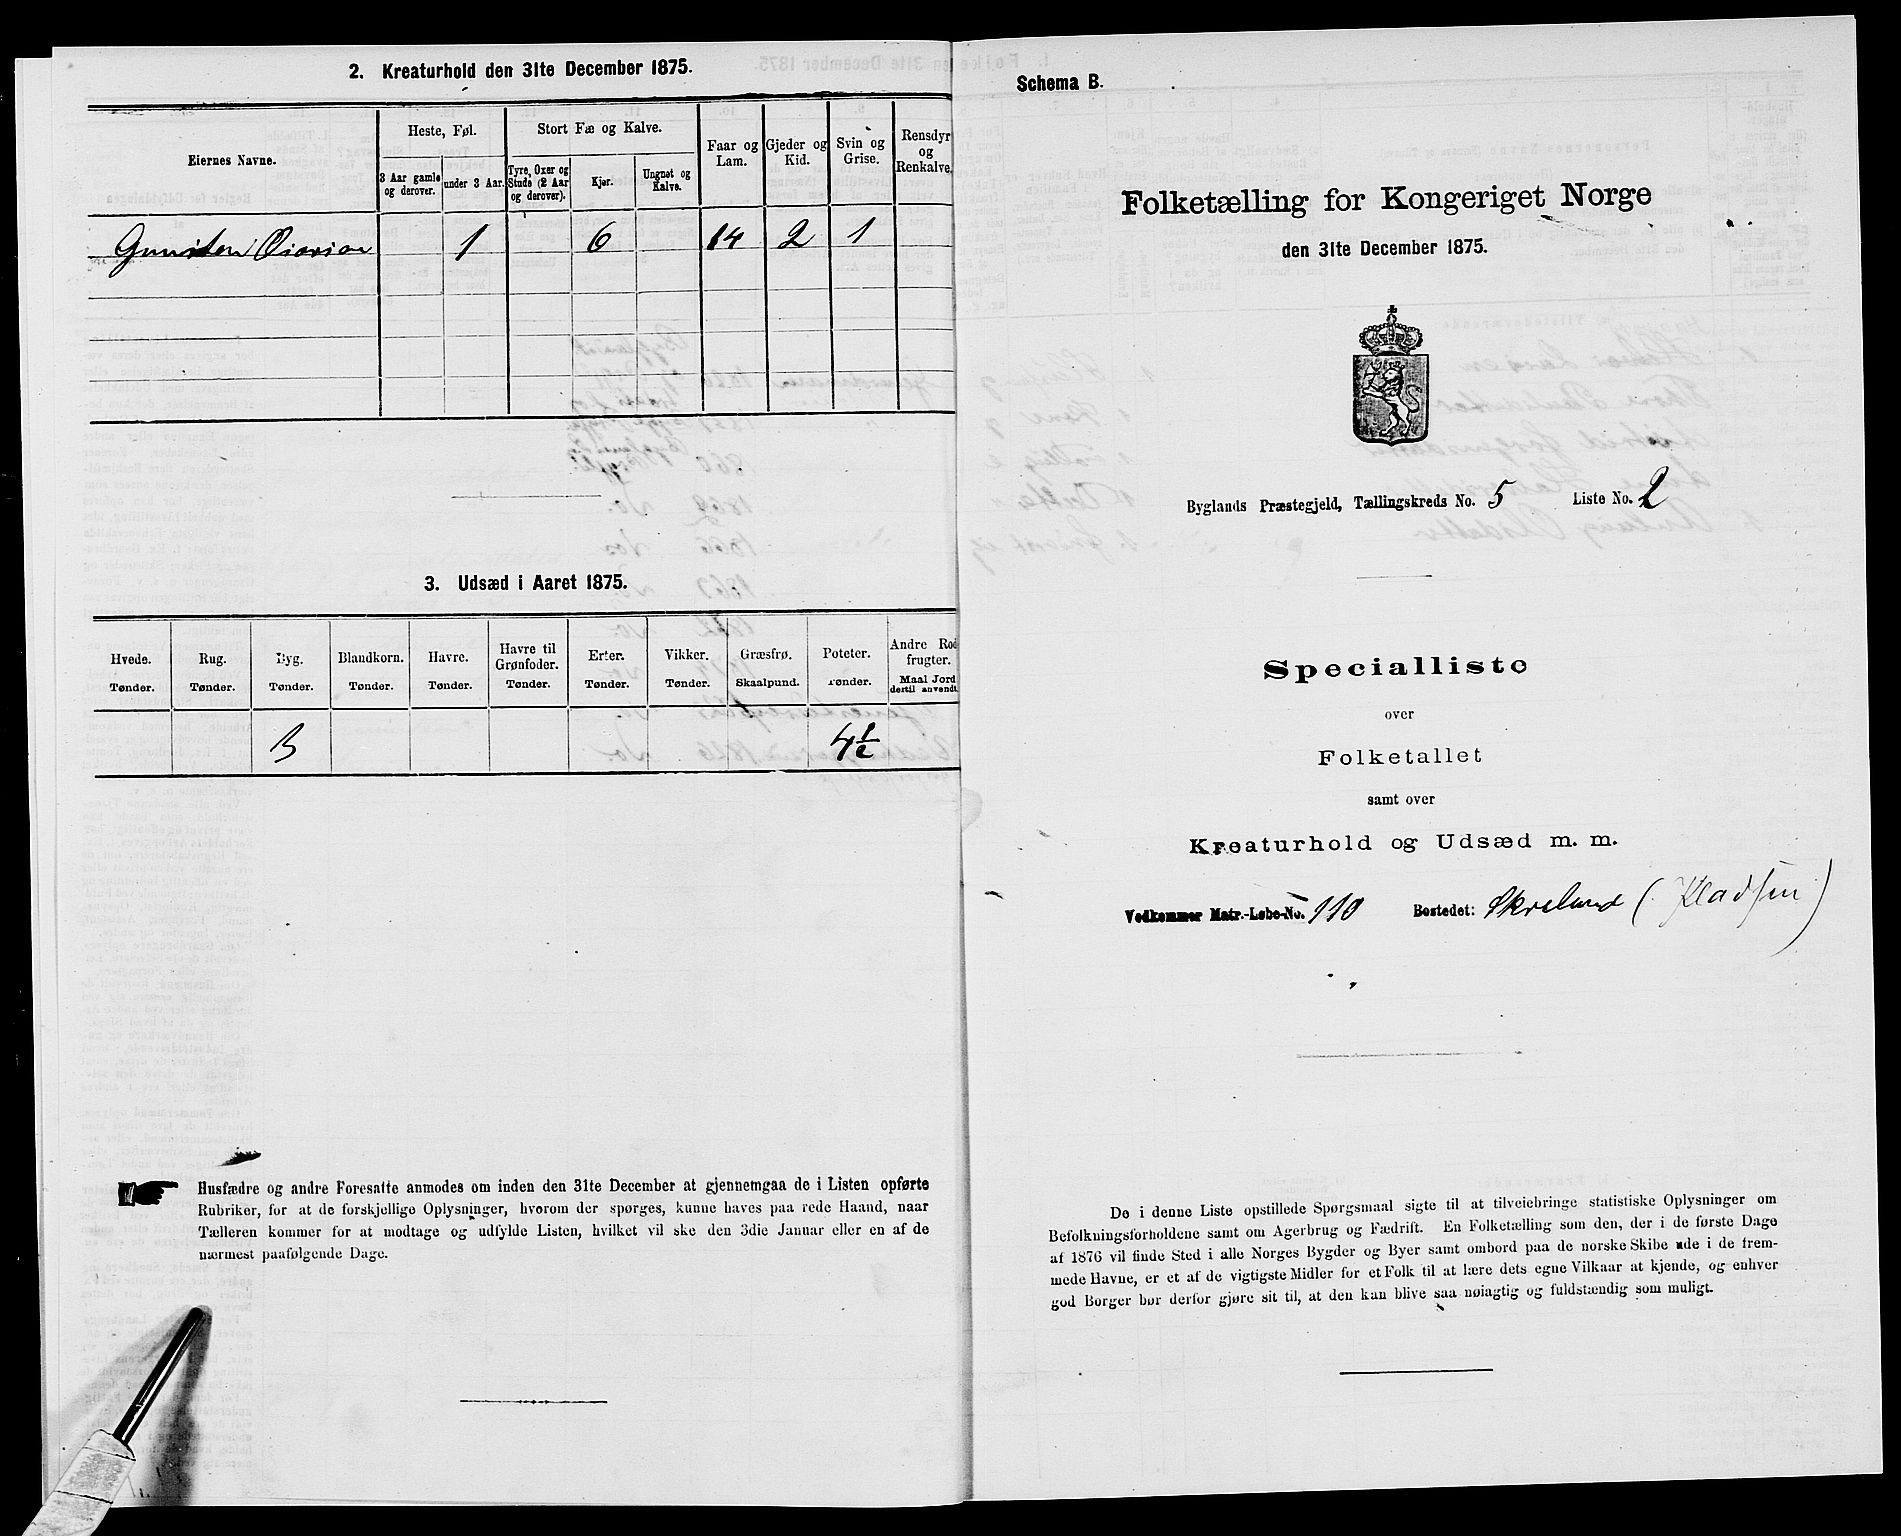 2. Kreaturhold den 31te December 1875.
Eiernes Navne.
Heste, Føl.
3 Aar gamle og derover.
under 3 Aar.
Stort Fæ og Kalve.
Tyre, Oxer og Stude (2 Aar og derover).
Kjør.
Ungnøt og Kalve.
Faar og Lam.
Gjeder og Kid.
Svin og Grise.
Rensdyr og Renkalve.
1 6 14 2 1
3. Udsæd i Aaret 1875.
Hvede. Rug. Byg. Blandkorn. Havre. Havre til Grønfoder. Erter. Vikker. Græsfrø. Poteter. Andre Rodfrugter.
Tønder. Tønder. Tønder. Tønder. Tønder. Tønder. Tønder. Tønder. Skaalpund. Tønder. Maal Jord dertil anvendt.
3 4½
Husfædre og andre Foresatte anmodes om inden den 31te December at gjennemgaa de i Listen opførte
Rubriker, for at de forskjellige Oplysninger, hvorom der spørges, kunne haves paa rede Haand, naar
Tælleren kommer for at modtage og udfylde Listen, hvilket vil ske den 3die Januar eller en af de
nærmest paafølgende Dage.
Schema B.
Folketælling for Kongeriget Norge
den 31te December 1875.
Byglands Præstegjeld, Tællingskreds No. 5 Liste No. 2
Specialliste
over
Folketallet
samt over
Kreaturhold og Udsæd m. m.
Vedkommer Matr.-Løbe-No. 110 Bostedet: Skreland (Kladsen)
De i denne Liste opstillede Spørgsmaal sigte til at tilveiebringe statistiske Oplysninger om
Befolkningsforholdene samt om Agerbrug og Fædrift. En Folketælling som den, der i de første Dage
af 1876 vil finde Sted i alle Norges Bygder og Byer samt ombord paa de norske Skibe ude i de frem-
mede Havne, er et af de vigtigste Midler for et Folk til at lære dets egne Vilkaar at kjende, og enhver
god Borger bør derfor gjøre sit til, at den kan blive saa nøiagtig og fuldstændig som muligt.